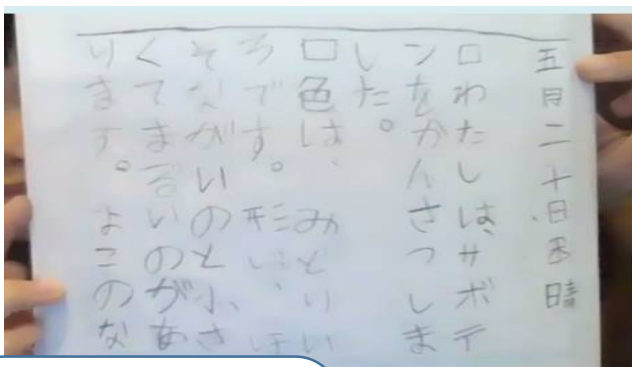 五月二十日 晴
□わたしは、サボテ
ンをかんさつしま
した。
□色は、みどりい
ろです。形は、ほ
そながいのと小さ
くてまるいのがあ
ります。よこのな